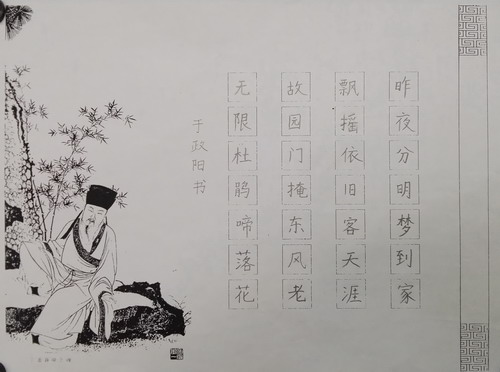 昨夜分明梦到家
飘摇依旧客天涯
故园门掩东风老
无限杜鹃啼落花
于政阳书